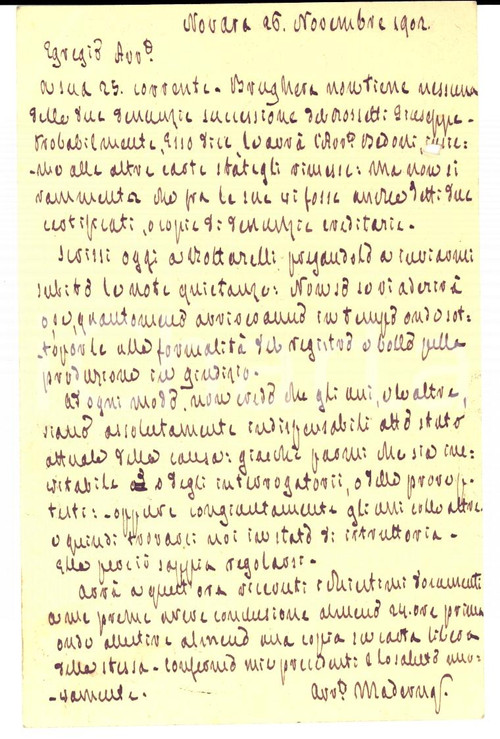 Novara 26. Novembre 1902.
Egregio Avv.º
A sua 25. corrente. Brughera non tiene nessuna
delle due denunzie successione del Rossetti Giuseppe -
Probabilmente, Esso dice le avrà l'Avv.º Bedoni, insie=
=me alle altre carte stategli rimesse: Ma non si
rammenta che fra le sue vi fosse anche detti due
certificati, o copie di denunzie ereditarie.
Scrissi oggi a Bottarelli pregandolo a inviarmi
subito le note quietanze: Non so se vi aderirà
o se, quantomeno arriveranno in tempo onde sot=
=toporle alle formalità del registro e bollo pella
produzione in giudizio.
Ad ogni modo, non credo che gli uni, e le altre,
siano assolutamente indispensabili allo stato
attuale della causa: giacchè parmi che sia ine=
vitabile o degli interrogatorii, o delle prove p
testi: - oppure congiuntamente gli uni colle altre.
e quindi trovarci noi in stato di istruttoria -
Ella perciò sappia regolarsi.
Avrà a quest'ora ricevuti i chiestimi documenti
a me preme avere conclusione almeno 24 ore prima
onde allestire almeno una copia in carta libera
della stessa - Confermo mie precedenti e lo saluto
=samente. Avv.º Maderna